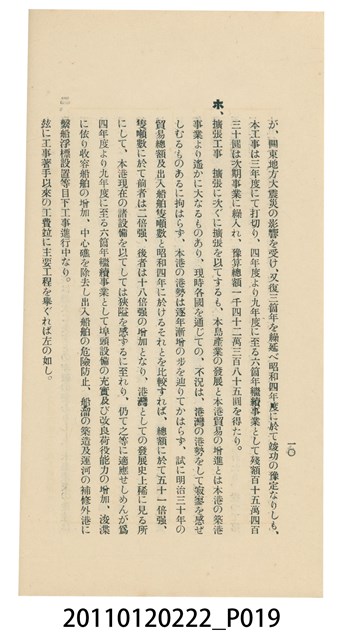 一〇
が、關東地方大震災の影響を受け、又復三箇年を繰延べ昭和四年度に於て竣功の豫定なりしも、
本工事は三年度にて打切り、四年度より九年度に至る六箇年繼續事業として殘額百十五萬四百
三十圓は次期事業に繰入れ、豫算總額一千四十二萬三百八十五圓を得たり。
ホ、擴張工事　擴張に次ぐに擴張を以てするも、本島產業の發展と本港貿易の增進とは本港の築港
事業より遙かに大なるものあり、現時各國を通じての、不況は、港灣の港勢をして寂寥を感せ
しむるものあるに拘はらず、本港の港勢は逐年漸增の步を辿りてかはらず、試に明治三十年の
貿易總額及出入船舶隻噸數と昭和四年に於けるそれとを比較すれば、總額に於て五十一倍强、
隻噸數に於て前者は二倍强、後者は十八倍强の增加となり、港灣としての發展史上稀に見る所
にして、本港現在の諸設備を以てしては狹隘を感ずるに至れり、仍て之等に適應せしめんが爲
四年度より九年度に至る六箇年繼續事業として埠頭設備の充實及び改良荷役能力の增加、浚渫
に依り收容船舶の增加、中心礁を除去し出入船舶の危險防止、船溜の築造及運河の補修外港に
繫船浮標設置等目下工事進行中なり。
玆に工事著手以來の工費拉に主要工程を擧ぐれば左の如し。
20110120222_P019